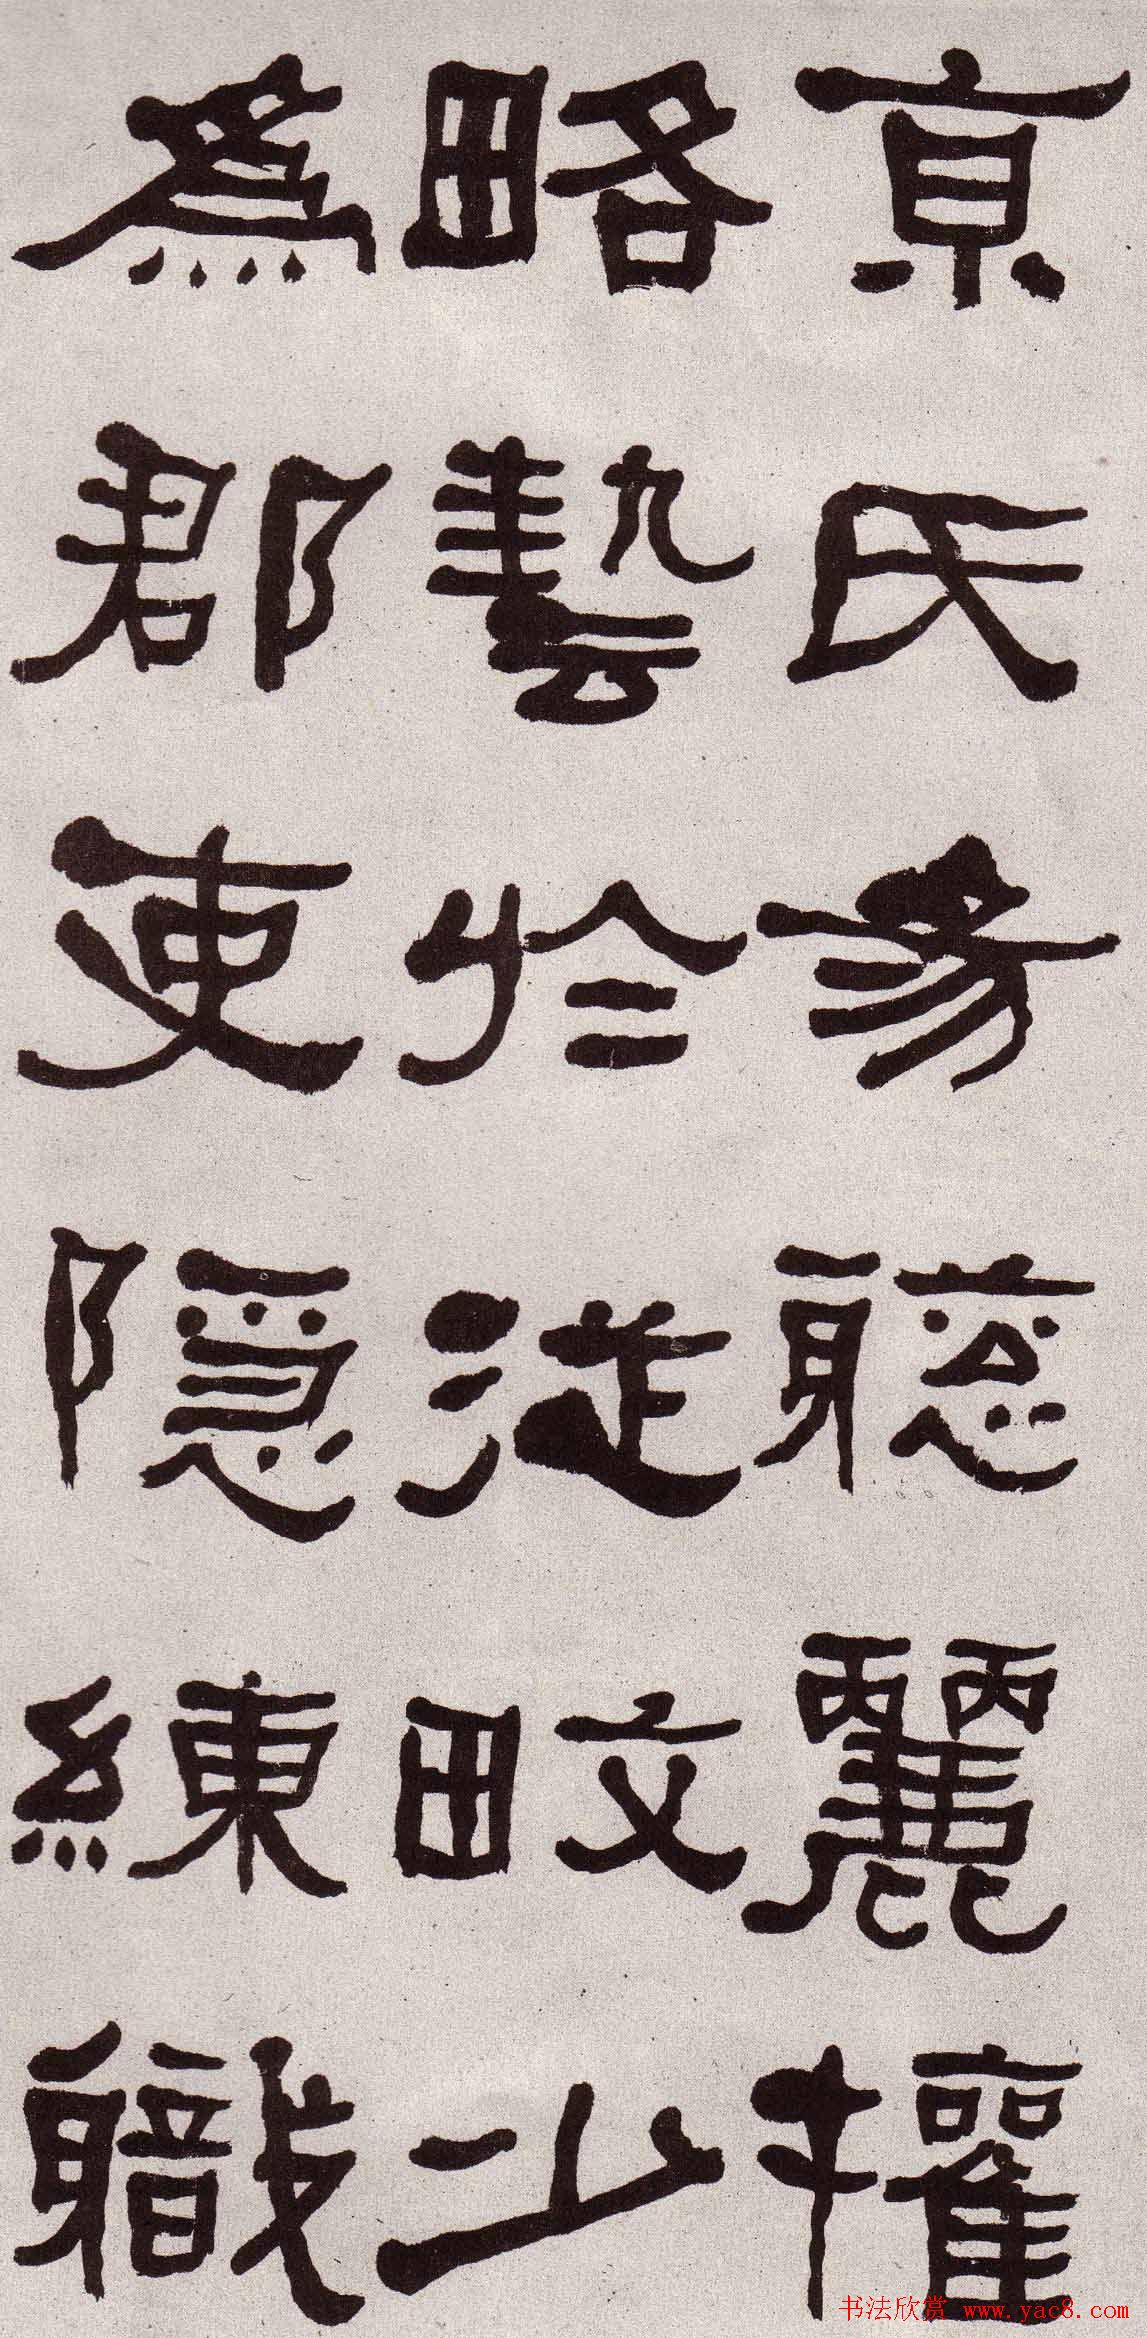 京氏易聰麗權
略藝於從畋少
為郡吏隱練職
书法欣赏 www.yac8.com